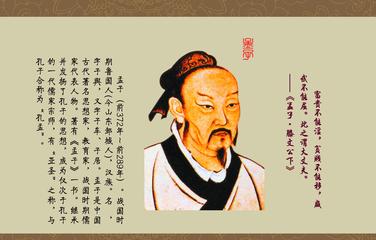 富贵不能淫,贫贱不能移,威
武不能屈。此之谓大丈夫。
——《孟子·滕文公下》
孟子
孟子(前372年~前289年)。战国时
期鲁国人(今山东邹城人),汉族。名 ,
字子舆,又字子车、子居。孟子是中国
古代著名思想家、教育家,战国时期儒
家代表人物。著有《孟子》一书。继承
并发扬了孔子的思想,成为仅次于孔子
的一代儒家宗师,有“亚圣”之称,与
孔子合称为“孔孟”。